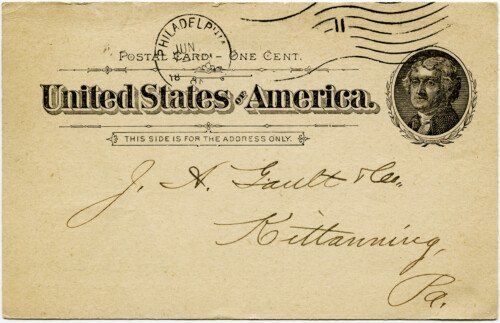 PHILADELPHIA
JUN
18
11
POSTAL CARD – ONE CENT.
United States of America.
THIS SIDE IS FOR THE ADDRESS ONLY.
J. A. Gault & Co.,
Kittanning,
Pa.